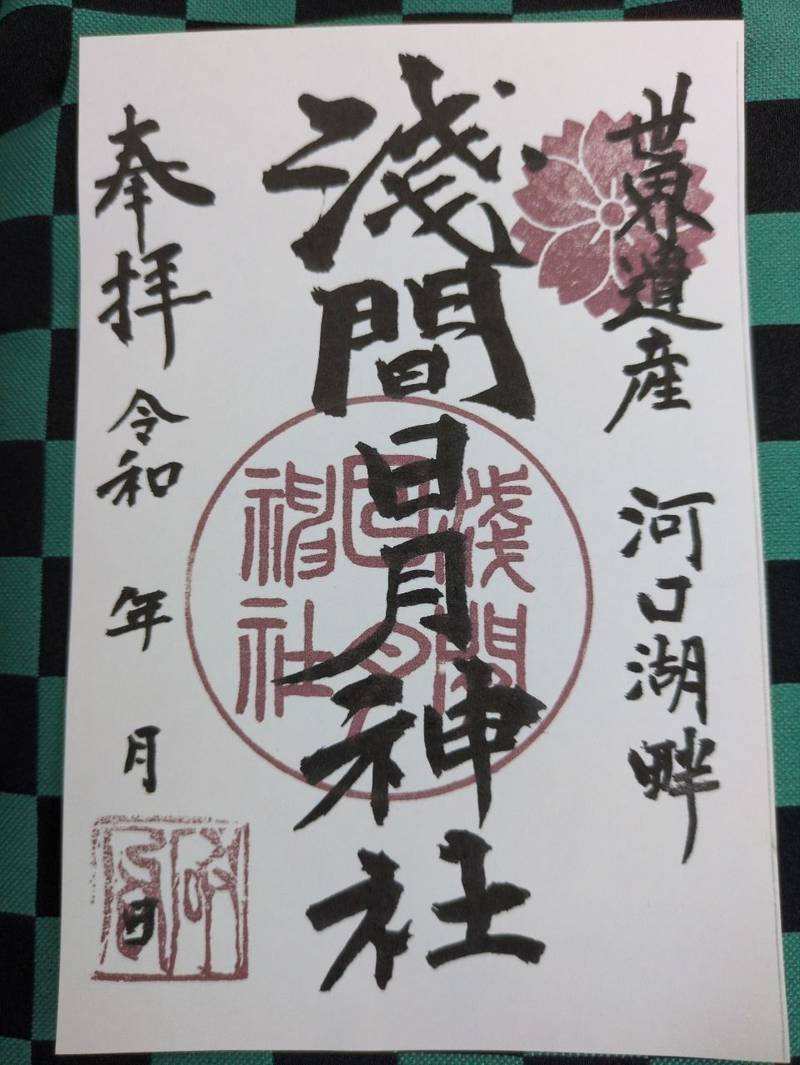 世界遺産 河口湖畔
淺間日月神社
奉拝 令和 年 月 日
淺間
日月
神社